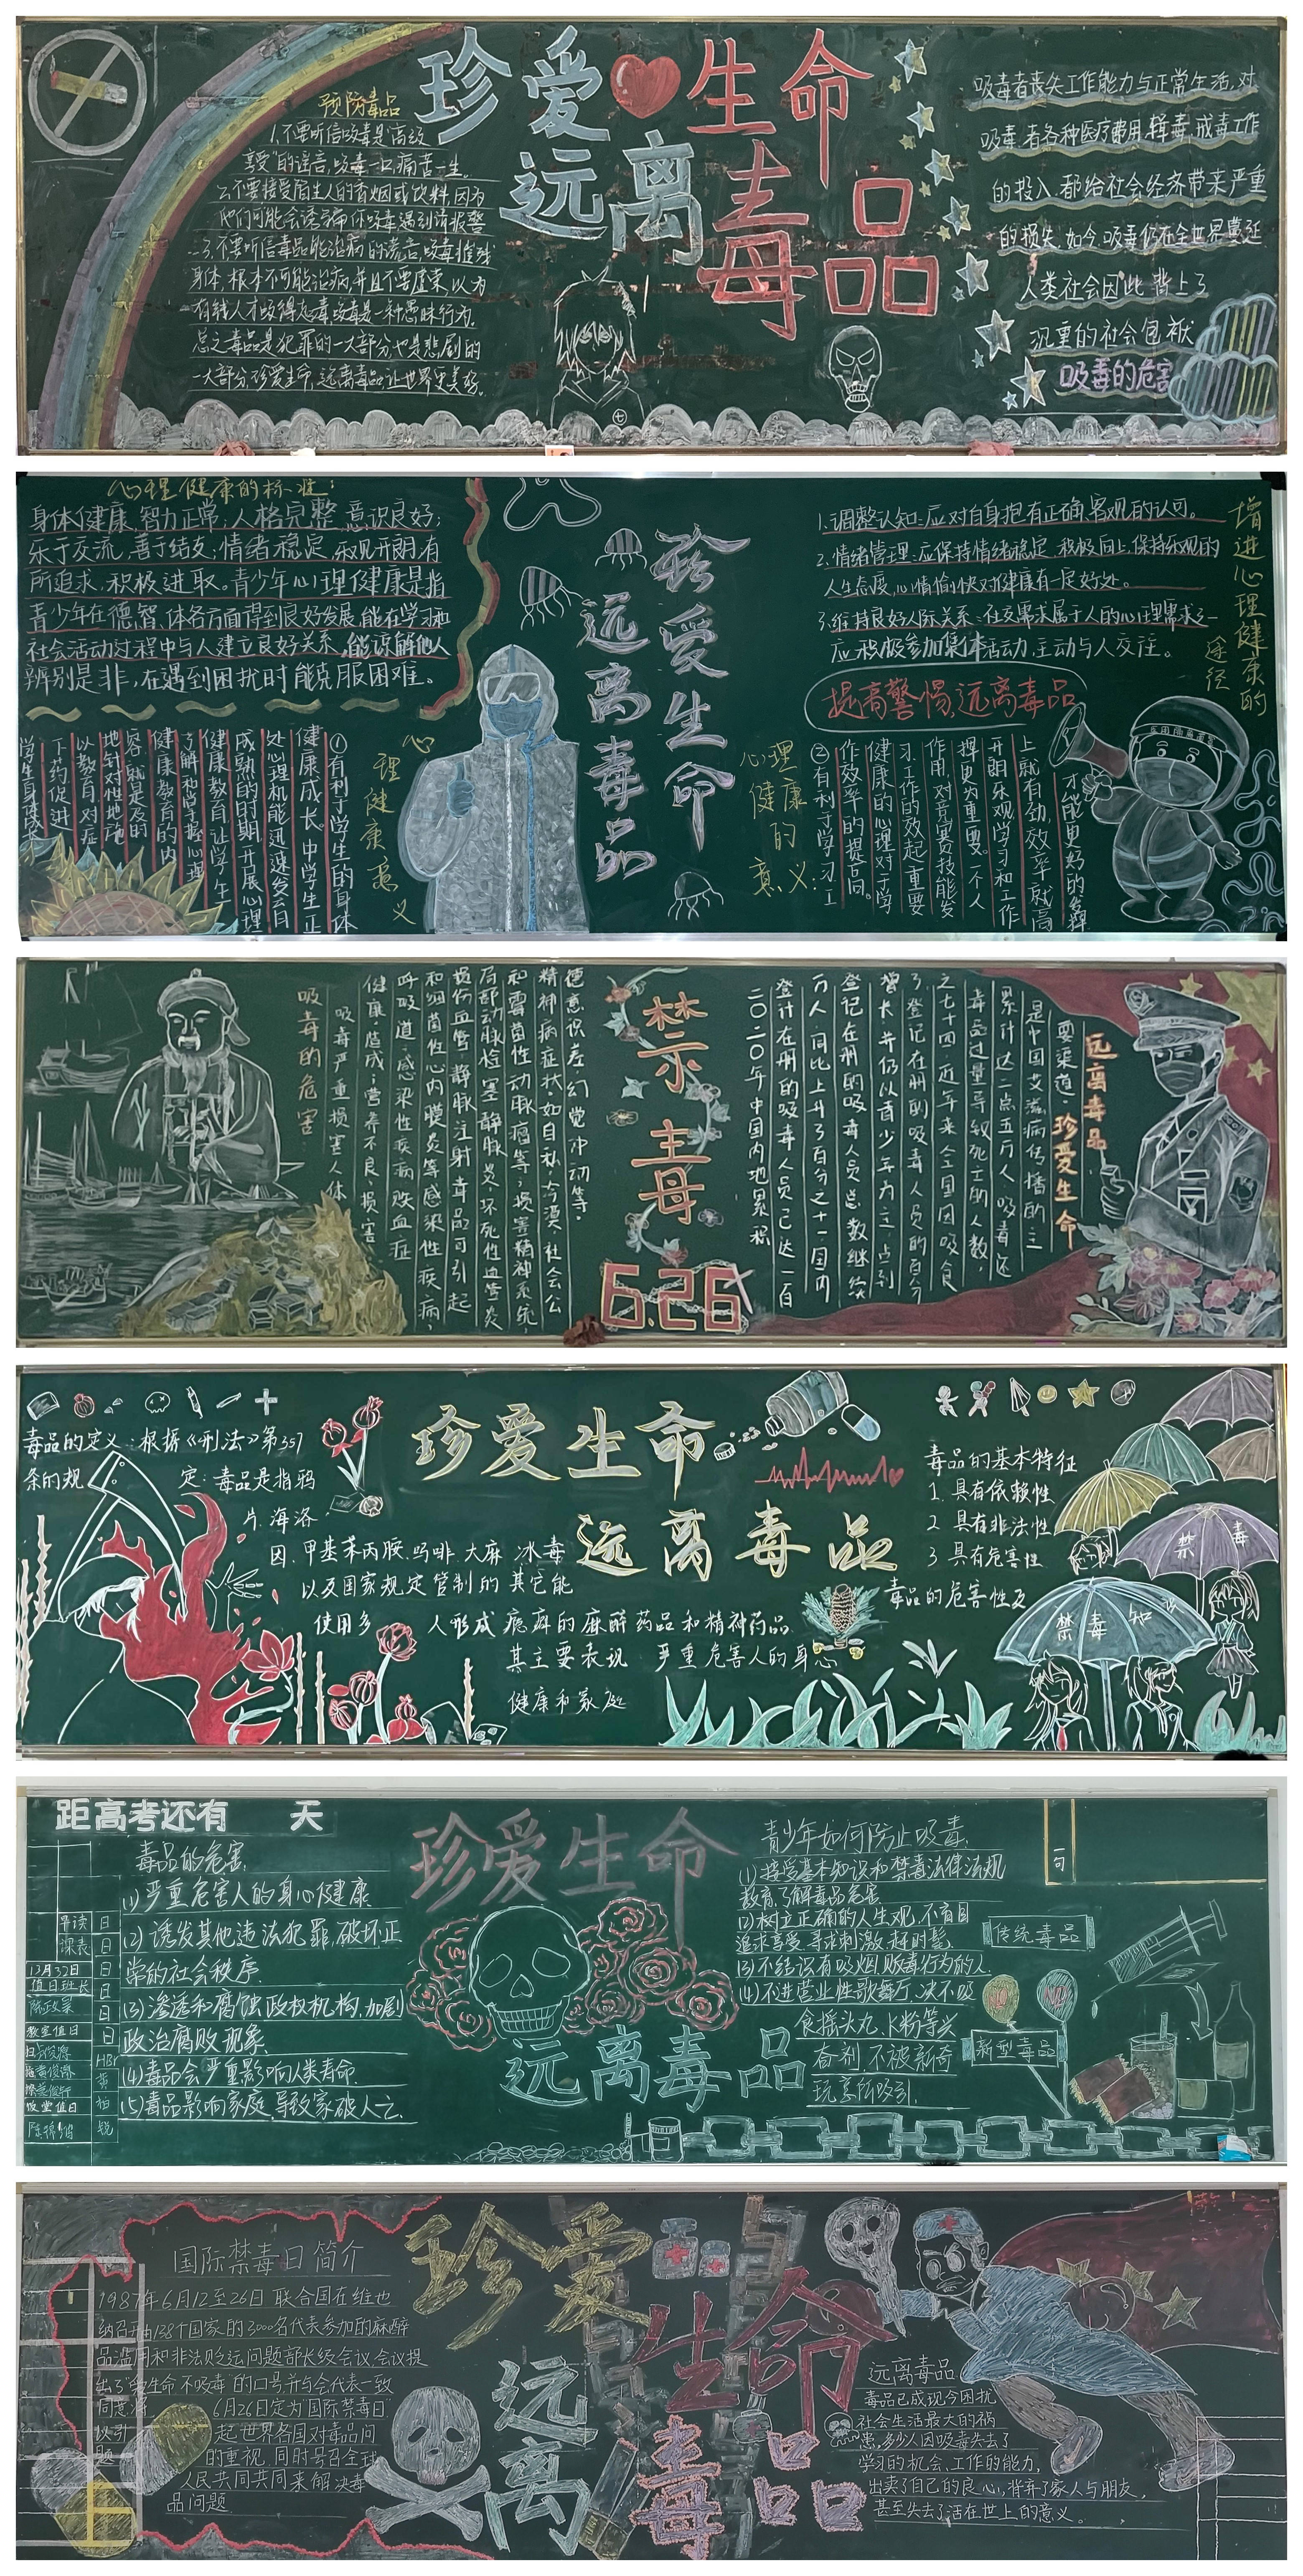 珍爱生命
远离毒品
预防毒品
1.不要听信吸毒是"高级
享受"的谣言,吸毒一口,痛苦一生。
2.不要接受陌生人的香烟或饮料,因为
他们可能会诱骗你吸毒遇到请报警
3.不要听信毒品能治病的谎言,吸毒摧残
身体,根本不可能治病,并且不要虚荣,以为
有钱人才吸得起毒,吸毒是一种愚昧行为,
总之毒品是犯罪的一大部分也是悲剧的
一大部分,珍爱生命,远离毒品让世界更美好。
吸毒者丧失工作能力与正常生活,对
吸毒者各种医疗费用,缉毒,戒毒工作
的投入,都给社会经济带来严重
的损失,如今,吸毒仍在全世界蔓延
人类社会因此背上了
沉重的社会包袱
吸毒的危害
心理健康的标准:
身体健康,智力正常;人格完整,意识良好;
乐于交流,善于结友;情绪稳定,乐观开朗;有
所追求,积极进取。青少年心理健康是指
青少年在德、智、体各方面得到良好发展,能在学习和
社会活动过程中与人建立良好关系,能谅解他人
辨别是非,在遇到困扰时能克服困难。
心理健康意义
①有利于学生的身体
健康成长。中学生正
处心理机能迅速发育
成熟的时期,开展心理
健康教育,让学生了
了解和掌握心理
健康教育的内
容,就是及时
地针对性地施
以教育,对症
下药促进
学生身体成长
珍爱生命
远离毒品
1.调整认知:应对自身抱有正确、客观的认可。
2.情绪管理:应保持情绪稳定,积极向上,保持乐观的
人生态度,心情愉快对健康有一定好处。
3.维持良好人际关系:社交需求属于人的心理需求之一
应积极参加集体活动,主动与人交往。
增进心理健康的
途径
提高警惕,远离毒品
心理健康的意义:
②有利于学习工
作效率的提高。
健康的心理对于学
习工作的效起重要
作用,对竞赛技能发
挥更为重要。一个人
开朗乐观,学习和工作
上就有劲,效率就高
才能更好的发挥
吸毒的危害
吸毒严重损害人体
健康,造成;营养不良,损害
呼吸道,感染性疾病,败血症
和细菌性心内膜炎等感染性疾病,
损伤血管,静脉注射毒品可引起
局部动脉栓塞静脉炎,坏死性血管炎
和霉菌性动脉瘤等,损害精神系统,
精神病症状,如自私,冷漠,社会公
德意识差,幻觉冲动等。
禁示毒
6.26
远离毒品
珍爱生命
二〇二〇年中国内地累积
登计在册的吸毒人员已达一百
万人,同比上升了百分之十一国内
登记在册的吸毒人员总数继续
增长,并仍以青少年为主,占到
了登记在册的吸毒人员的百分
之七十四,近年来全国因吸食
毒品过量导致死亡的人数,
累计达二点五万人,吸毒还
是中国艾滋病传播的主
要渠道。
珍爱生命
远离毒品
毒品的定义:根据《刑法》第357
条的规定:毒品是指鸦
片.海洛
因.甲基苯丙胺.吗啡.大麻 冰毒
以及国家规定管制的其它能
使用多人形成瘾癖的麻醉药品和精神药品
其主要表现 严重危害人的身心
健康和家庭
毒品的基本特征
1.具有依赖性
2 具有非法性
3 具有危害性
毒品的危害性及
禁毒
禁毒知
距高考还有 天
早读
课表
值日班长
教室值日
值日
日
日
日
日
日
日
毒品的危害
(1)严重危害人的身心健康
(2)诱发其他违法犯罪,破坏正
常的社会秩序.
(3)渗透和腐蚀政权机构,加剧
政治腐败现象.
(4)毒品会严重影响人类寿命.
(5)毒品影响家庭,导致家破人亡.
珍爱生命
远离毒品
青少年如何防止吸毒.
(1)接受基本知识和禁毒法律法规
教育,了解毒品危害.
(2)树立正确的人生观,不盲目
追求享受,寻求刺激,赶时髦.
(3)不结识有吸烟,贩毒行为的人.
(4)不进营业性歌舞厅,决不吸
食摇头丸、K粉等兴
奋剂,不被新奇
玩意所吸引.
一句
传统毒品
新型毒品
国际禁毒日简介
1987年6月12至26日 联合国在维也
纳召开由138个国家的3000名代表参加的麻醉
品滥用和非法贩运问题部长级会议,会议提
出了"爱生命 不吸毒"的口号并与会代表一致
同意,将6月26日定为"国际禁毒日"
以引起世界各国对毒品问
题的重视,同时号召全球
人民共同共同来解决毒
品问题.
珍爱生命
远离毒品
远离毒品
毒品已成现今困扰
社会生活最大的祸
患,多少人因吸毒失去了
学习的机会、工作的能力,
出卖了自己的良心,背弃了家人与朋友,
甚至失去了活在世上的意义。